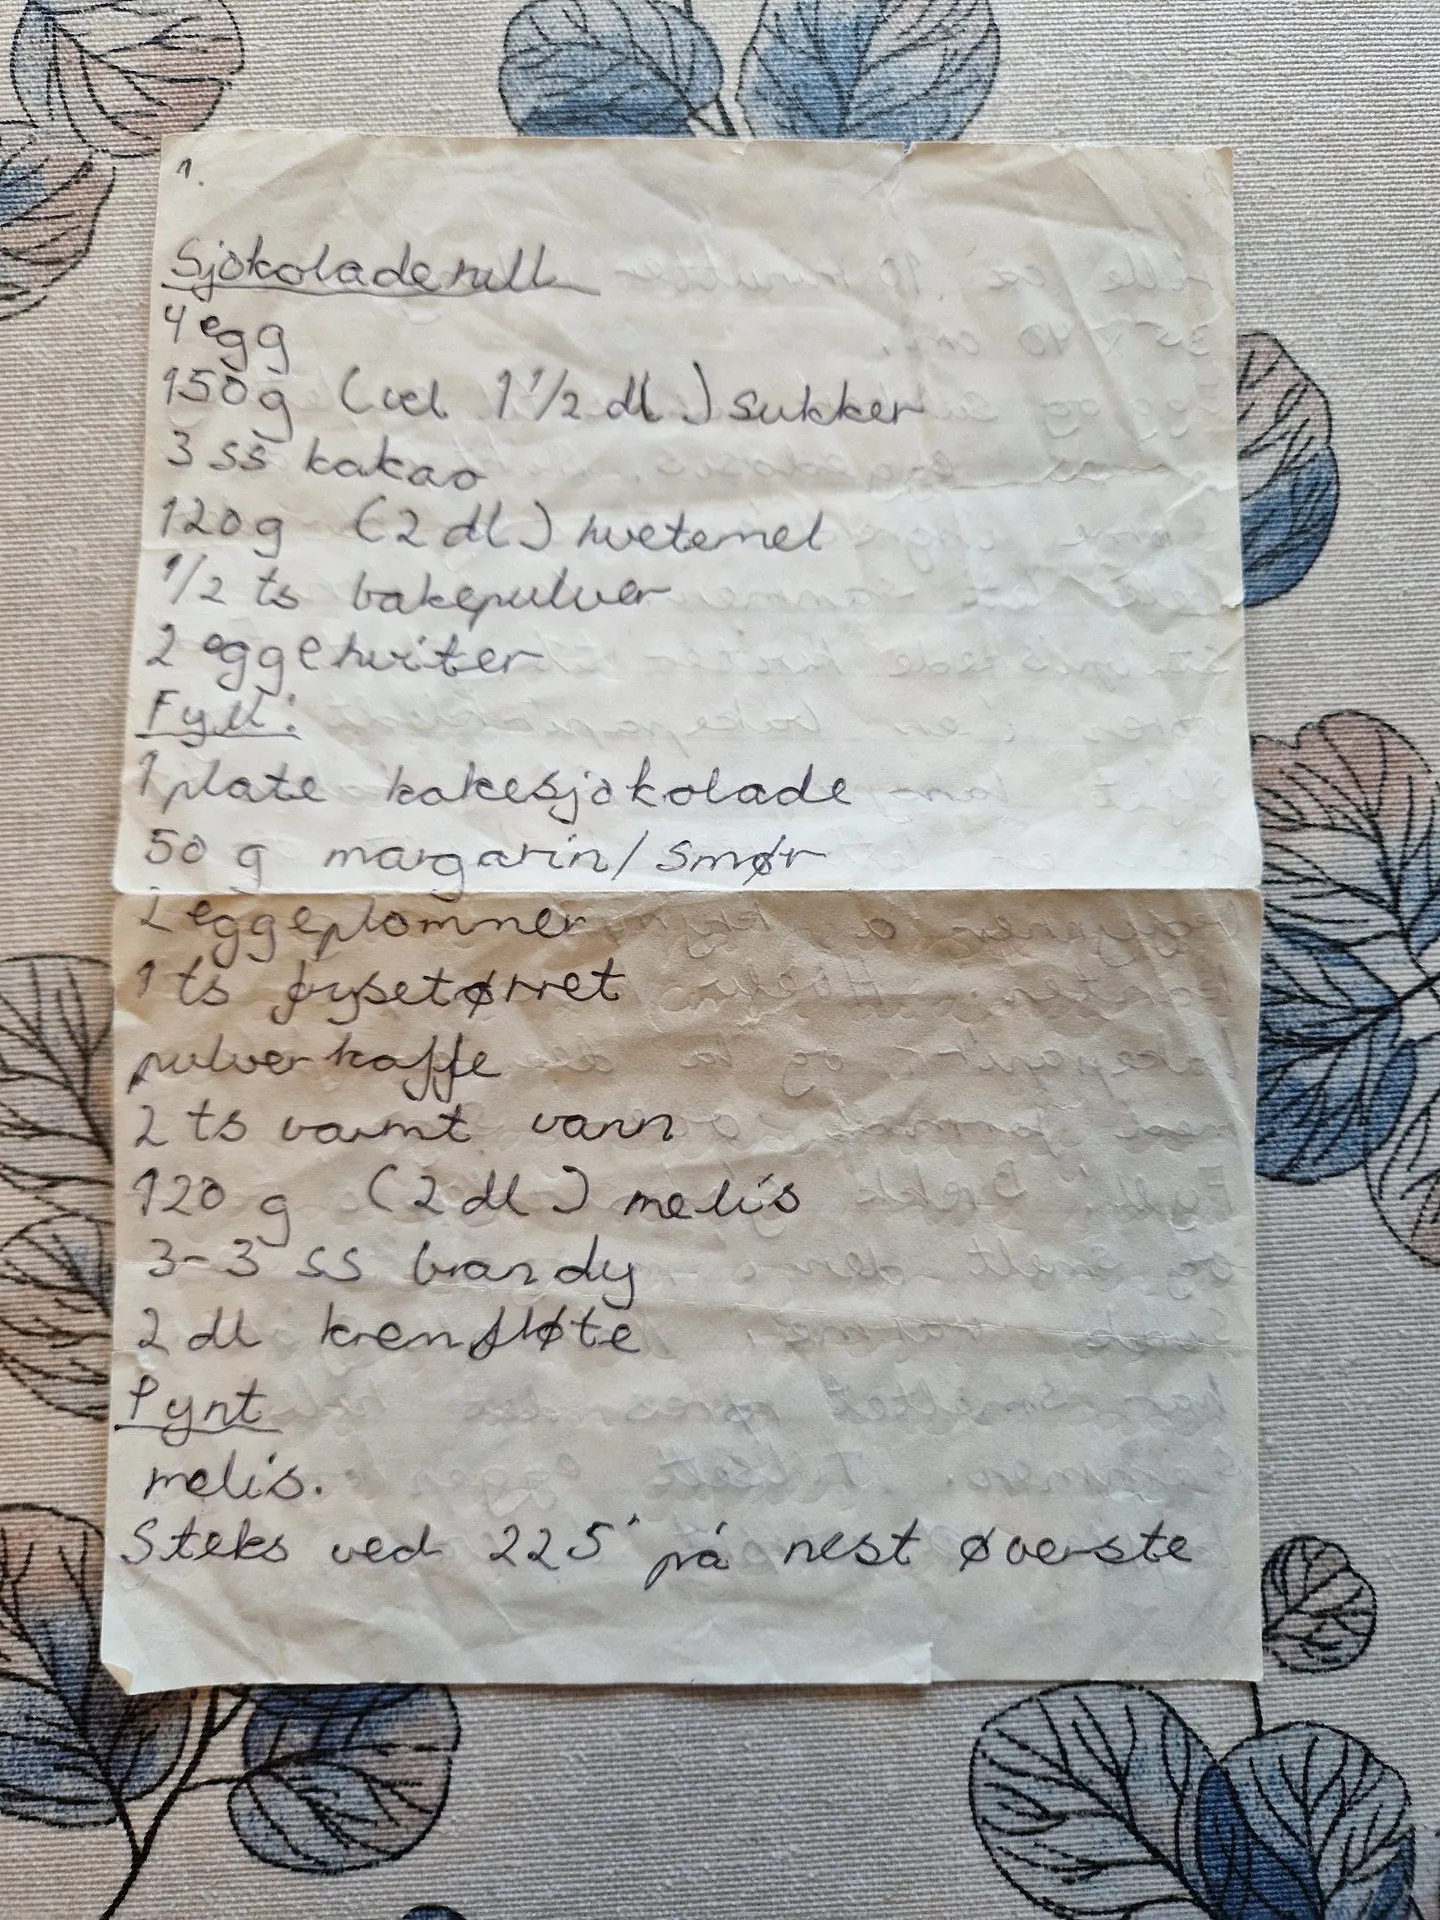 1.
Sjokoladerull
4 egg
150g (vel 1 1/2 dl) sukker
3 ss kakao
120g (2 dl) hvetemel
1/2 ts bakepulver
2 eggehviter
Fyll:
1 plate kokesjokolade
50 g margarin/smør
2 eggeplommer
1 ts frysetørret
pulverkaffe
2 ts varmt vann
120 g (2 dl) melis
3-3 ss brandy
2 dl kremfløte
Pynt
melis.
Steks ved 225° på nest øverste